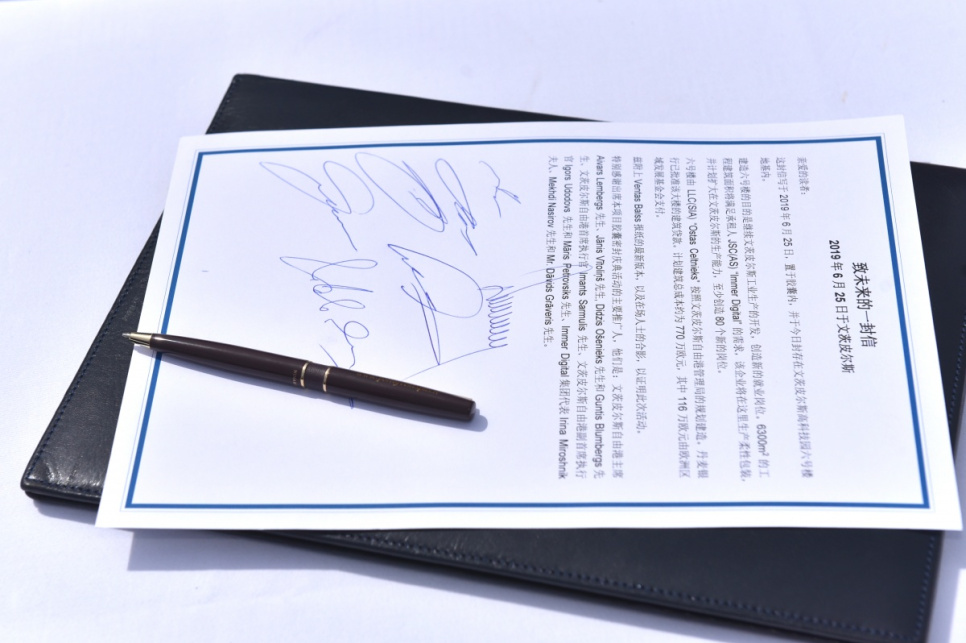 致未来的一封信
2019 年 6 月 25 日于文茨皮尔斯
亲爱的读者：
这封信写于 2019 年 6 月 25 日，置于胶囊内，并于今日封存在文茨皮尔斯高科技园六号楼
地基内。
建造六号楼的目的是继续文茨皮尔斯工业生产的开发，创造新的就业岗位。6300m² 的工
程建筑面积将满足承租人 JSC(AS) “Immer Digital” 的需求，该企业将在这里生产柔性包装，
并计划扩大在文茨皮尔斯的生产能力，至少创造 80 个新的岗位。
六号楼由 LLC(SIA) “Ostas Celtnieks” 按照文茨皮尔斯自由港管理局的规划建造。丹麦银
行已批准该大楼的建筑贷款，计划建筑总成本约为 770 万欧元，其中 116 万欧元由欧洲区
域发展基金会支付。
兹附上 Ventas Balss 报纸的最新版本，以及在场人士的合影，以证明此次活动。
特别感谢出席本项目胶囊密封庆典活动的主要推广人，他们是：文茨皮尔斯自由港主席
Aivars Lembergs 先生、Jānis Vītoliņš 先生、Didzis Ošenieks 先生和 Guntis Blumbergs 先
生，文茨皮尔斯自由港首席执行官 Imants Sarmulis 先生，文茨皮尔斯自由港副首席执行
官 Igors Udodovs 先生和 Māris Petrovskis 先生，Immer Digital 集团代表 Irina Miroshnik
夫人、Mekhdi Nasirov 先生和 Mr. Dāvids Grāveris 先生。